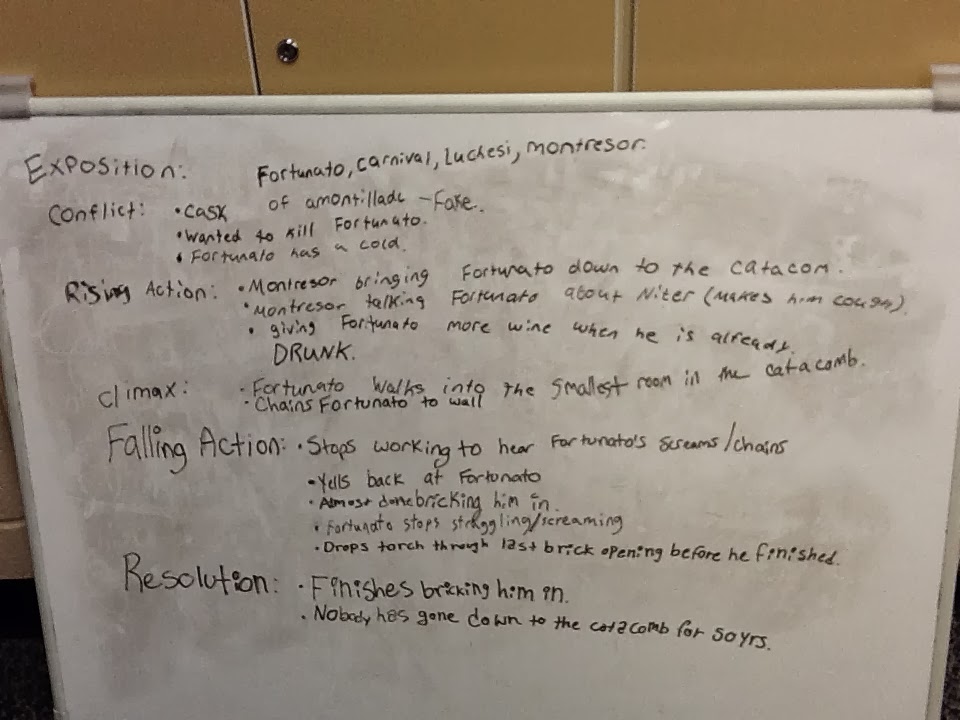 Exposition: Fortunato, carnival, Luchesi, montresor.
Conflict: • Cask of amontillado - Fake.
• Wanted to kill Fortunato.
• Fortunato has a cold.
Rising Action: • Montresor bringing Fortunato down to the catacom.
• montresor talking Fortunato about Niter (makes him cough).
• giving Fortunato more wine when he is already
DRUNK.
Climax: • Fortunato walks into the smallest room in the catacomb.
• Chains Fortunato to wall
Falling Action: • Stops working to hear Fortunato's screams/chains
• Yells back at Fortunato
• Almost done bricking him in.
• Fortunato stops struggling/screaming
• Drops torch through last brick opening before he finished.
Resolution: • Finishes bricking him in.
• Nobody has gone down to the catacomb for 50 yrs.